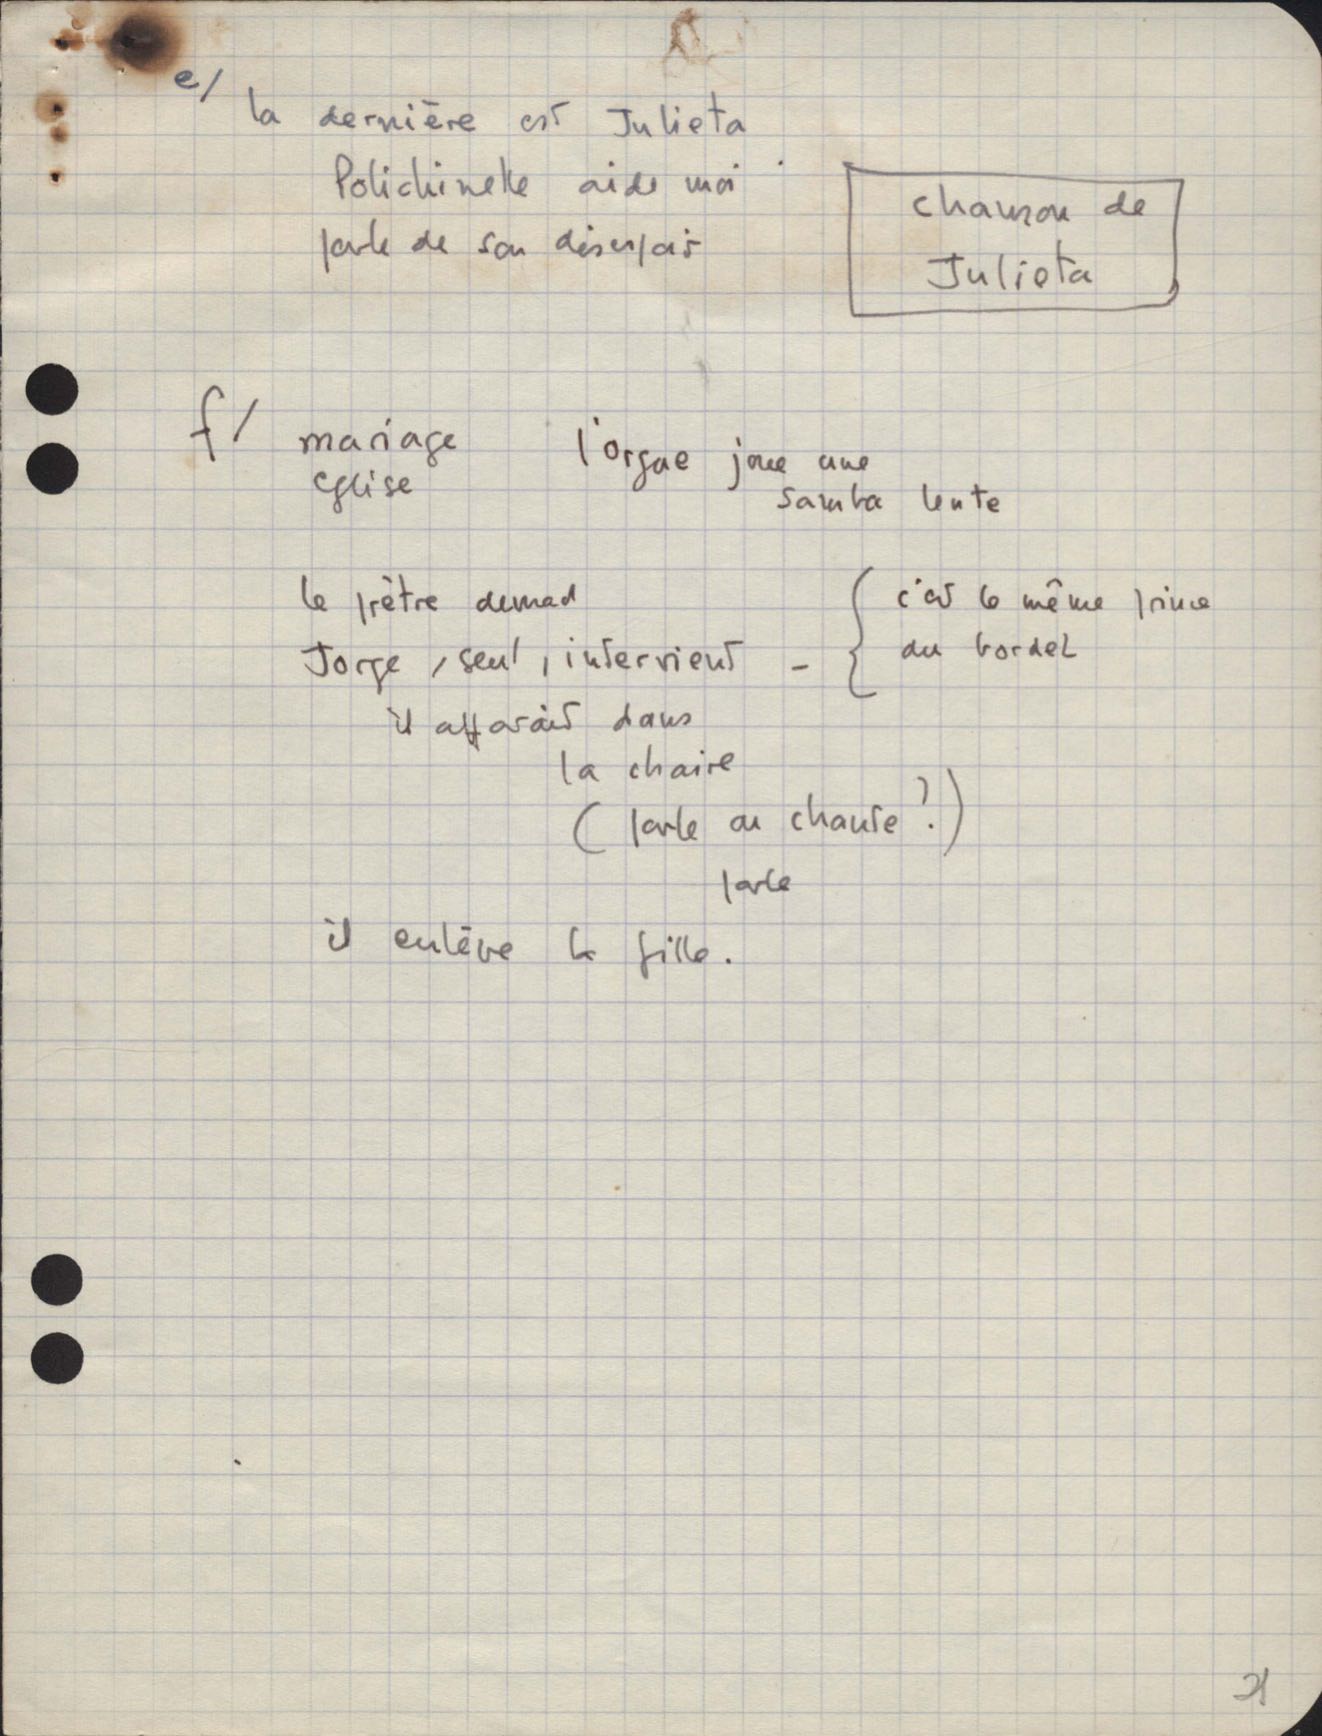 e/
la dernière est Julieta
Polichinelle aide moi
parle de son désespoir
chanson de
Julieta
f/
mariage
eglise
l'orgue joue une
samba lente
le prêtre demad
Jorge, seul, intervient -
c'est le même prince
du bordel
il apparait dans
la chaire
( parle ou chante ? )
parle
il enlève la fille.